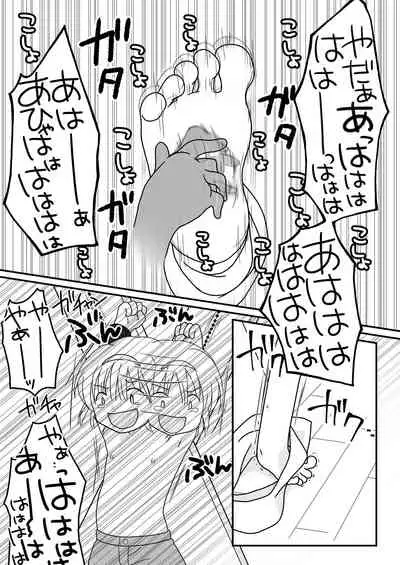 やだぁ
あっははは
はは
はーーー
っははは
こしょ
こしょ
こしょ
こしょ
こしょ
ガタ
ガタ
こしょ
こしょ
こしょ
こしょ
こしょ
あはーーぁ
あひゃはは
はははは
あははは
ははははは
ガク
ガク
ガチャ
ガチャ
ぶん
ぶん
やー
やぁーーッ
やぁっはははは
あーーは
はははは